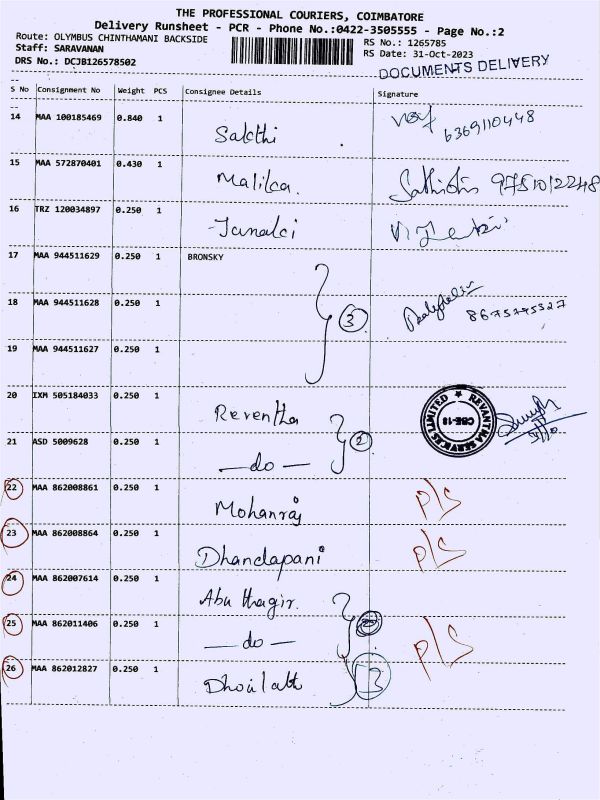 THE PROFESSIONAL COURIERS, COIMBATORE
Delivery Runsheet - PCR - Phone No.:0422-3505555 - Page No.:2
Route: OLYMBUS CHINTHAMANI BACKSIDE RS No.: 1265785
Staff: SARAVANAN RS Date: 31-Oct-2023
DRS No.: DCJB126578502 DOCUMENTS DELIVERY
S No Consignment No Weight PCS Consignee Details Signature
14 MAA 100185469 0.840 1 Sakthi 6369110448
15 MAA 572870401 0.430 1 Malilca. 9751012248
16 TRZ 120034897 0.250 1 Janalci
17 MAA 944511629 0.250 1 BRONSKY
18 MAA 944511628 0.250 1 3 8675775327
19 MAA 944511627 0.250 1
20 IXM 505184033 0.250 1 Reventha REVANTHA SERVICES LIMITED CBE-18
21 ASD 5009628 0.250 1 — do — 2
22 MAA 862008861 0.250 1 Mohanraj P/S
23 MAA 862008864 0.250 1 Dhandapani P/S
24 MAA 862007614 0.250 1 Abu thagir.
25 MAA 862011406 0.250 1 — do — P/S
26 MAA 862012827 0.250 1 Dhoulath 3